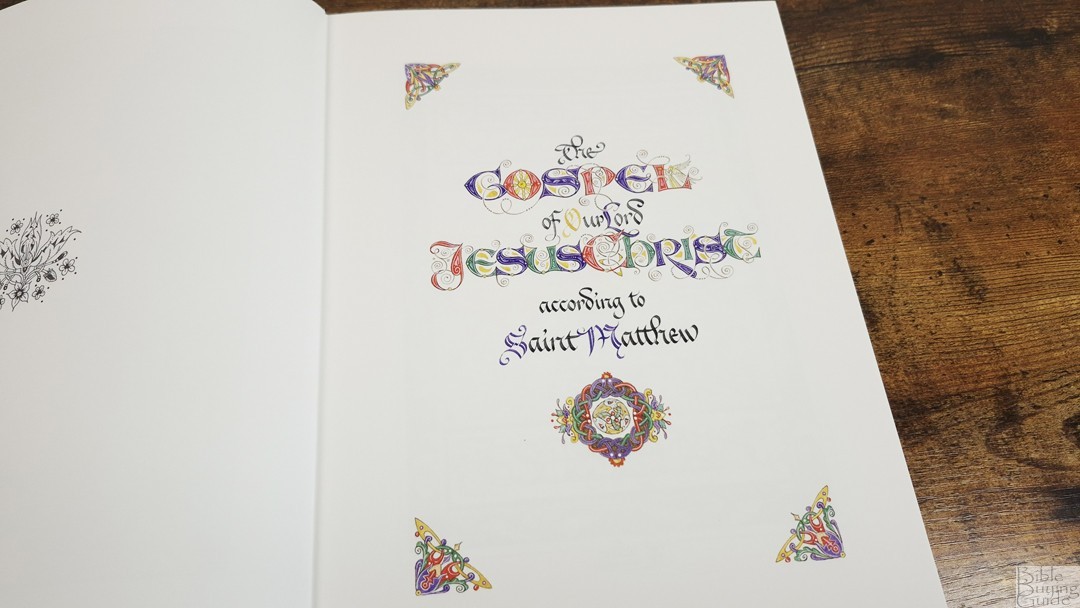 The
GOSPEL
of Our Lord
JESUS CHRIST
according to
Saint Matthew
Bible
Buying
Guide